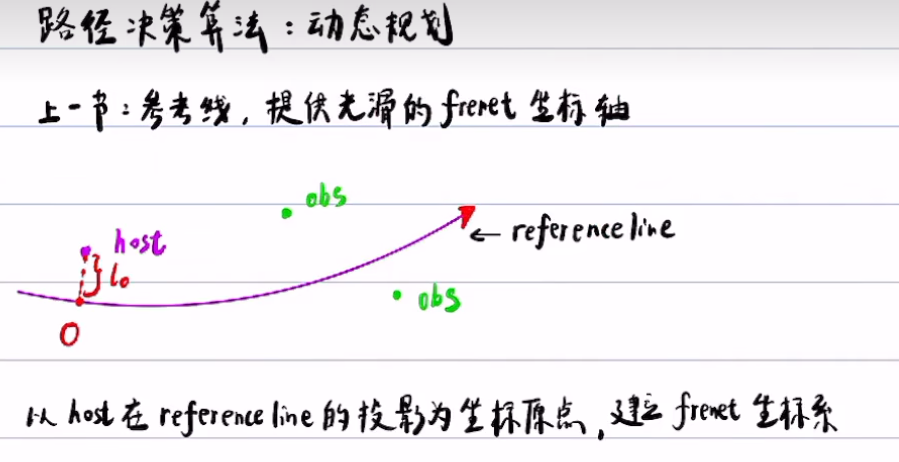 路径决策算法：动态规划
上一节：参考线，提供光滑的frenet 坐标轴
obs
host
← reference line
l₀
obs
0
以 host 在 reference line 的投影为坐标原点，建立 frenet 坐标系